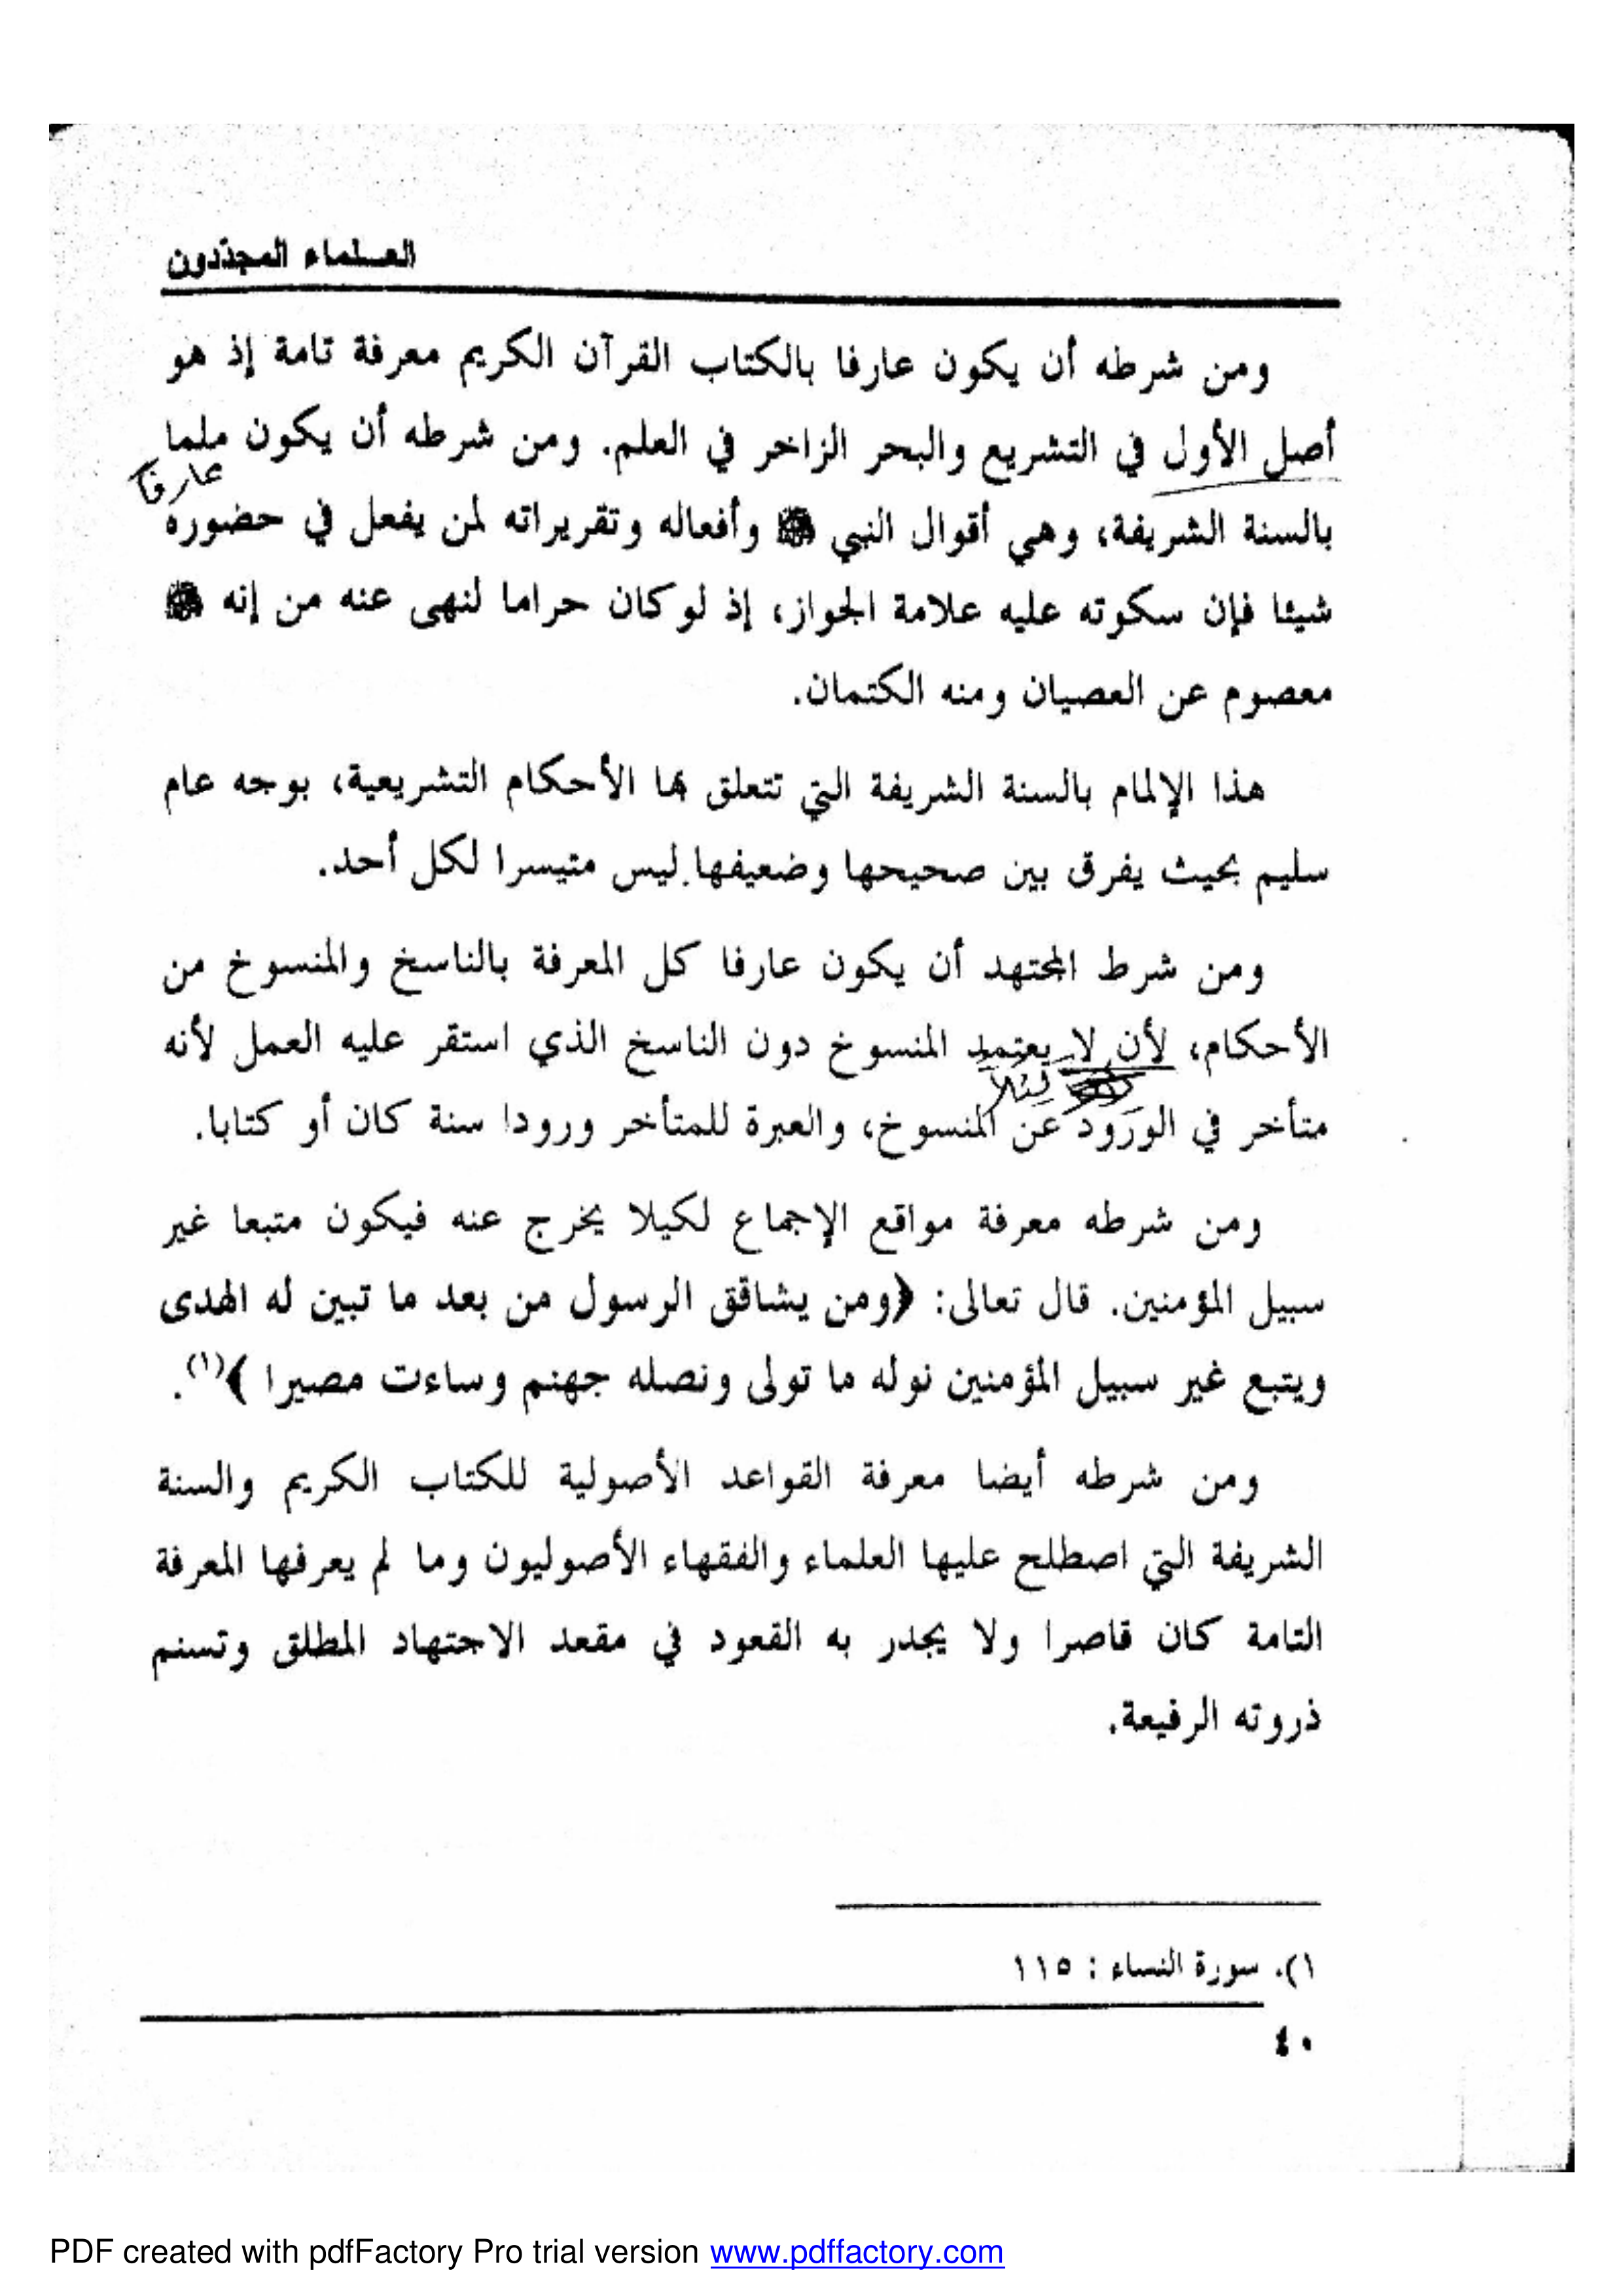 العلماء المجددون
ومن شرطه أن يكون عارفا بالكتاب القرآن الكريم معرفة تامة إذ هو
أصل الأول في التشريع والبحر الزاخر في العلم. ومن شرطه أن يكون ملما
عارفا
بالسنة الشريفة، وهي أقوال النبي ﷺ وأفعاله وتقريراته لمن يفعل في حضوره
شيئا فإن سكوته عليه علامة الجواز، إذ لو كان حراما لنهى عنه من إنه ﷺ
معصوم عن العصيان ومنه الكتمان.
هذا الإلمام بالسنة الشريفة التي تتعلق بها الأحكام التشريعية، بوجه عام
سليم بحيث يفرق بين صحيحها وضعيفها ليس متيسرا لكل أحد.
ومن شرط المجتهد أن يكون عارفا كل المعرفة بالناسخ والمنسوخ من
الأحكام، لأن لا يعتمد المنسوخ دون الناسخ الذي استقر عليه العمل لأنه
لئلا
متأخر في الورود عن المنسوخ، والعبرة للمتأخر ورودا سنة كان أو كتابا.
ومن شرطه معرفة مواقع الإجماع لكيلا يخرج عنه فيكون متبعا غير
سبيل المؤمنين. قال تعالى: ﴿ومن يشاقق الرسول من بعد ما تبين له الهدى
ويتبع غير سبيل المؤمنين نوله ما تولى ونصله جهنم وساءت مصيرا ﴾(١).
ومن شرطه أيضا معرفة القواعد الأصولية للكتاب الكريم والسنة
الشريفة التي اصطلح عليها العلماء والفقهاء الأصوليون وما لم يعرفها المعرفة
التامة كان قاصرا ولا يجدر به القعود في مقعد الاجتهاد المطلق وتسنم
ذروته الرفيعة.
١). سورة النساء : ١١٥
٤٠
PDF created with pdfFactory Pro trial version www.pdffactory.com